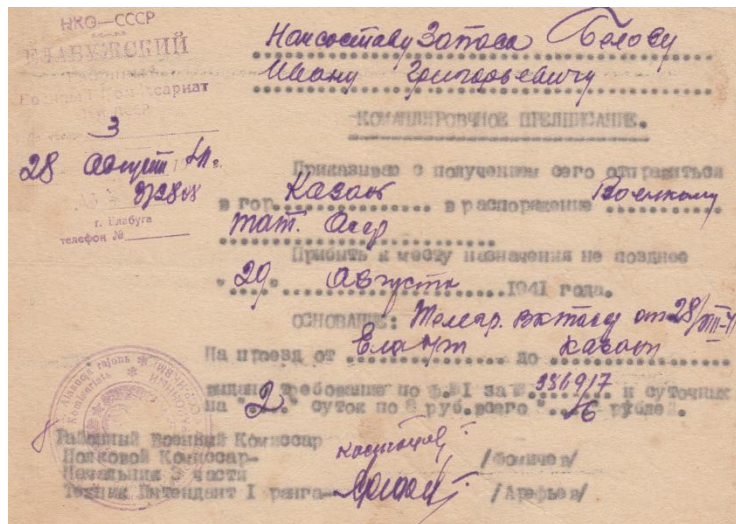 НКО—СССР
ЕЛАБУЖСКИЙ
Районный
Военный Комиссариат
3
28 Август 41 г.
г. Елабуга
телефон №
Начсоставу Запаса Белову
Ивану Григорьевичу
КОМАНДИРОВОЧНОЕ ПРЕДПИСАНИЕ.
Приказываю с получением сего отправиться
в гор. Казань в распоряжение Военкому
Тат. Асср
Прибыть к месту назначения не позднее
"29" Августа 1941 года.
ОСНОВАНИЕ: Телегр. от 28/VIII-41
На проезд от Елабуги до Казани
выдано требование по ф.№1 за № 936917 и суточных
на "2" суток по руб. всего "16" рублей.
Районный Военный Комиссар
Полковой Комиссар- /Фомичев/
Начальник 3 части
Техник Интендант I ранга- /Арефьев/